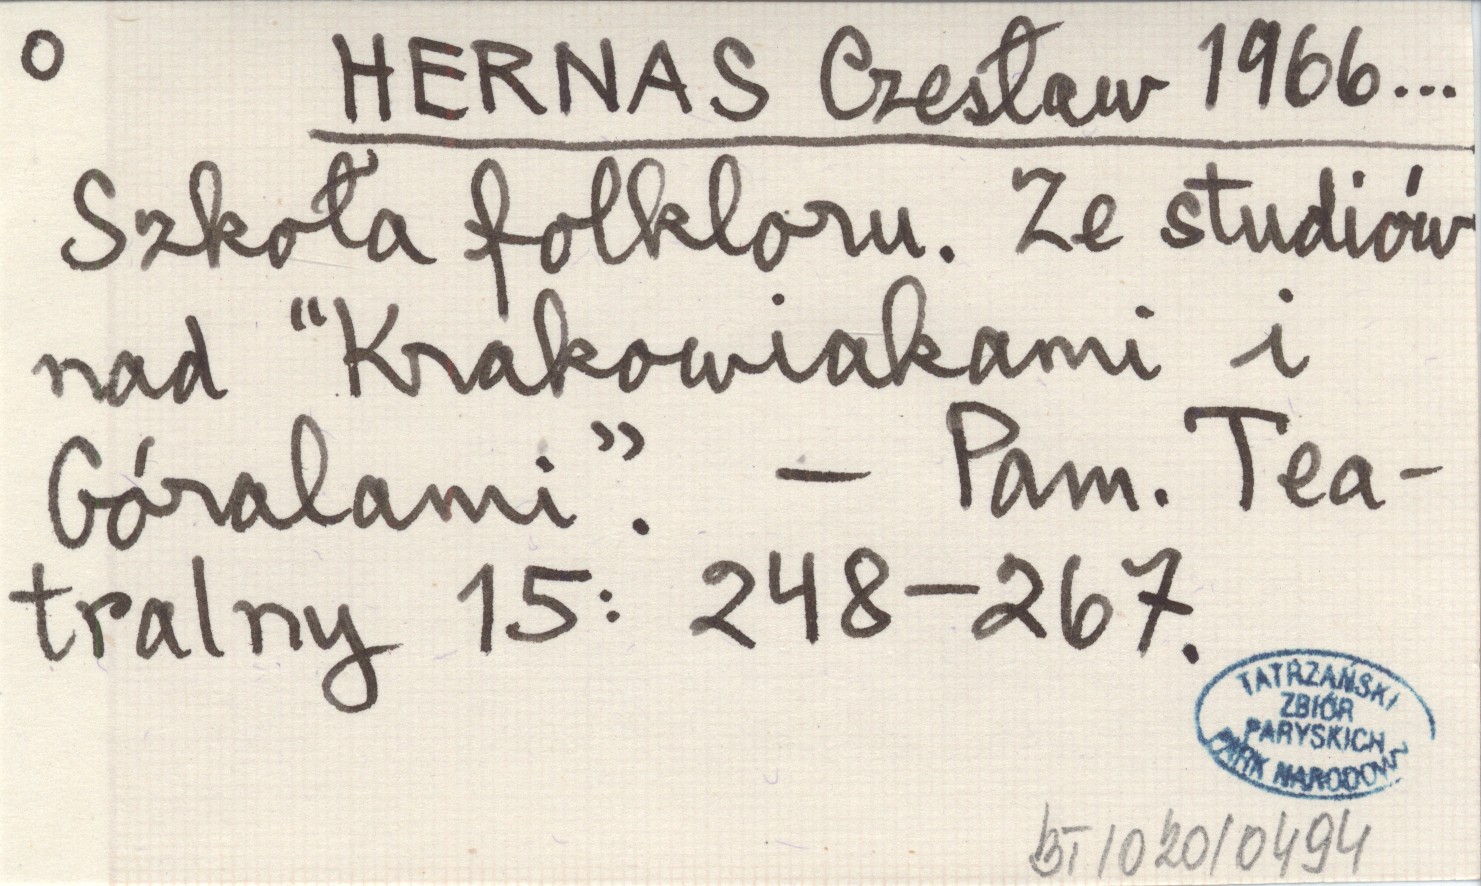 o HERNAS Czesław 1966...
Szkoła folkloru. Ze studiów
nad “Krakowiakami i
Góralami”. – Pam. Tea-
tralny 15: 248–267.
TATRZAŃSKI
ZBIÓR
PARYSKICH
PARK NARODOWY
BT/020/0494